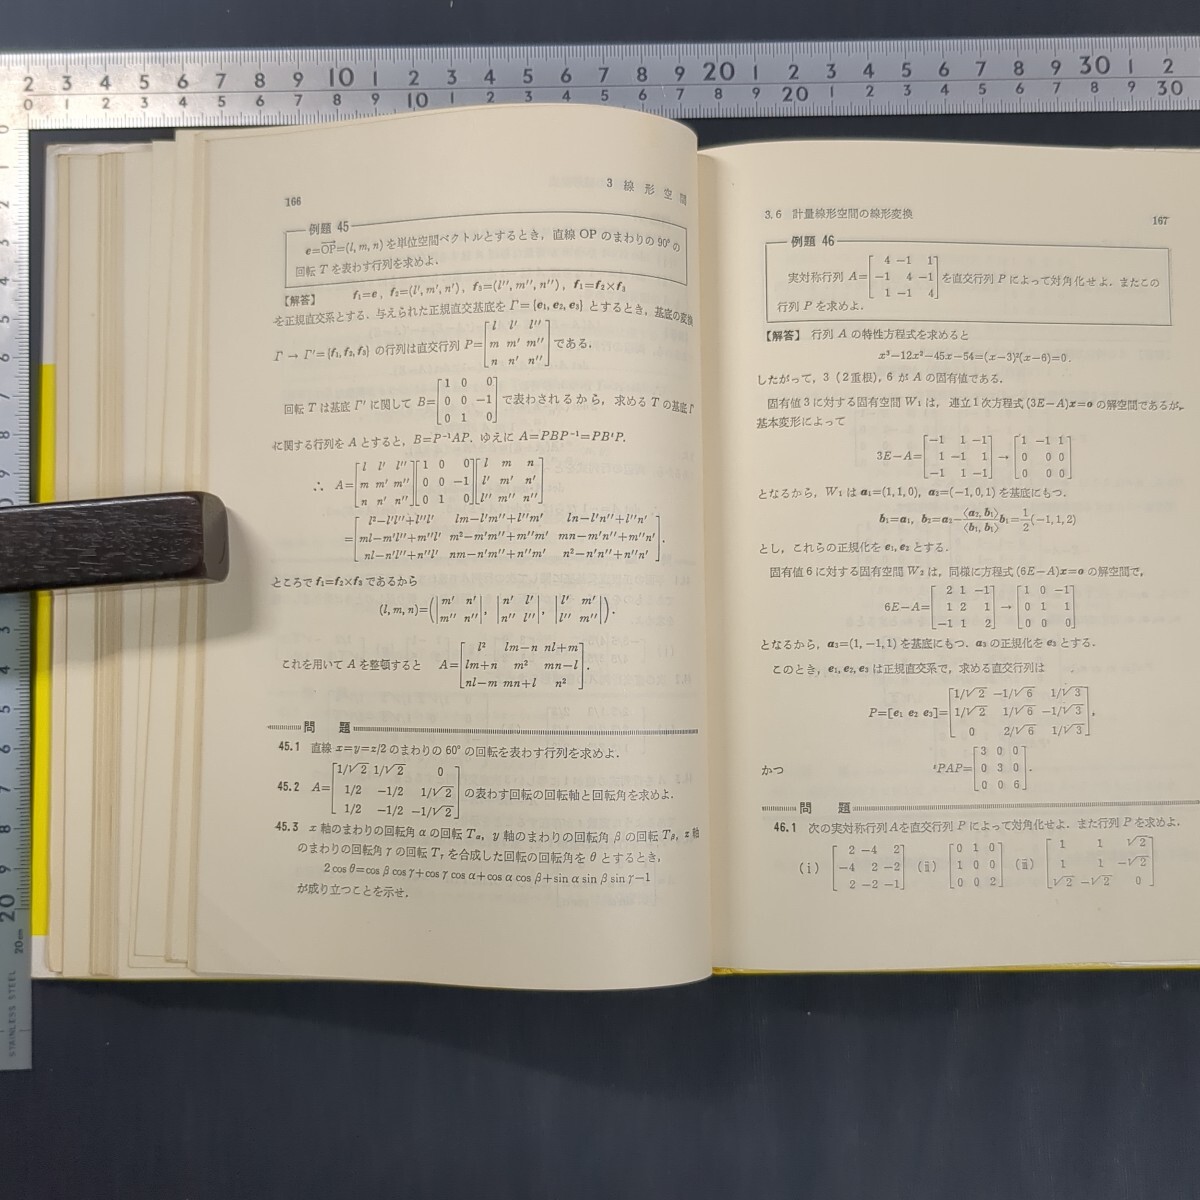 2 3 4 5 6 7 8 9 10 1 2 3 4 5 6 7 8 9 20 1 2 3 4 5 6 7 8 9 30 1 2
0 1 2 3 4 5 6 7 8 9 10 1 2 3 4 5 6 7 8 9 20 1 2 3 4 5 6 7 8 9 30
STAINLESS STEEL
20cm
166
3 線形空間
例題 45
e=OP→=(l, m, n) を単位空間ベクトルとするとき，直線 OP のまわりの 90° の
回転 T を表わす行列を求めよ．
【解答】 f₁=e, f₂=(l′, m′, n′), f₃=(l″, m″, n″), f₁=f₂×f₃
を正規直交系とする．与えられた正規直交基底を Γ={e₁, e₂, e₃} とするとき，基底の変換
Γ → Γ′={f₁, f₂, f₃} の行列は直交行列 P=[l l′ l″; m m′ m″; n n′ n″] である．
回転 T は基底 Γ′ に関して B=[1 0 0; 0 0 −1; 0 1 0] で表わされるから，求める T の基底 Γ
に関する行列を A とすると，B=P⁻¹AP．ゆえに A=PBP⁻¹=PBᵗP．
∴ A=[l l′ l″; m m′ m″; n n′ n″][1 0 0; 0 0 −1; 0 1 0][l m n; l′ m′ n′; l″ m″ n″]
=[l²−l′l″+l″l′ lm−l′m″+l″m′ ln−l′n″+l″n′; ml−m′l″+m″l′ m²−m′m″+m″m′ mn−m′n″+m″n′; nl−n′l″+n″l′ nm−n′m″+n″m′ n²−n′n″+n″n′].
ところで f₁=f₂×f₃ であるから
(l, m, n)=(|m′ n′; m″ n″|, |n′ l′; n″ l″|, |l′ m′; l″ m″|).
これを用いて A を整頓すると A=[l² lm−n nl+m; lm+n m² mn−l; nl−m mn+l n²].
問 題
45.1 直線 x=y=z/2 のまわりの 60° の回転を表わす行列を求めよ．
45.2 A=[1/√2 1/√2 0; 1/2 −1/2 1/√2; 1/2 −1/2 −1/√2] の表わす回転の回転軸と回転角を求めよ．
45.3 x 軸のまわりの回転角 α の回転 Tα, y 軸のまわりの回転角 β の回転 Tβ, z 軸
のまわりの回転角 γ の回転 Tγ を合成した回転の回転角を θ とするとき，
2 cos θ=cos β cos γ+cos γ cos α+cos α cos β+sin α sin β sin γ−1
が成り立つことを示せ．
3.6 計量線形空間の線形変換
167
例題 46
実対称行列 A=[4 −1 1; −1 4 −1; 1 −1 4] を直交行列 P によって対角化せよ．またこの
行列 P を求めよ．
【解答】 行列 A の特性方程式を求めると
x³−12x²−45x−54=(x−3)²(x−6)=0.
したがって，3（2重根），6 が A の固有値である．
固有値 3 に対する固有空間 W₁ は，連立1次方程式 (3E−A)x=o の解空間であるが，
基本変形によって
3E−A=[−1 1 −1; 1 −1 1; −1 1 −1] → [1 −1 1; 0 0 0; 0 0 0]
となるから，W₁ は a₁=(1, 1, 0), a₂=(−1, 0, 1) を基底にもつ．
b₁=a₁, b₂=a₂−⟨a₂, b₁⟩/⟨b₁, b₁⟩ b₁=1/2(−1, 1, 2)
とし，これらの正規化を e₁, e₂ とする．
固有値 6 に対する固有空間 W₂ は，同様に方程式 (6E−A)x=o の解空間で，
6E−A=[2 1 −1; 1 2 1; −1 1 2] → [1 0 −1; 0 1 1; 0 0 0]
となるから，a₃=(1, −1, 1) を基底にもつ．a₃ の正規化を e₃ とする．
このとき，e₁, e₂, e₃ は正規直交系で，求める直交行列は
P=[e₁ e₂ e₃]=[1/√2 −1/√6 1/√3; 1/√2 1/√6 −1/√3; 0 2/√6 1/√3],
かつ ᵗPAP=[3 0 0; 0 3 0; 0 0 6].
問 題
46.1 次の実対称行列 A を直交行列 P によって対角化せよ．また行列 P を求めよ．
(i) [2 −4 2; −4 2 −2; 2 −2 −1] (ii) [0 1 0; 1 0 0; 0 0 2] (iii) [1 1 √2; 1 1 −√2; √2 −√2 0]